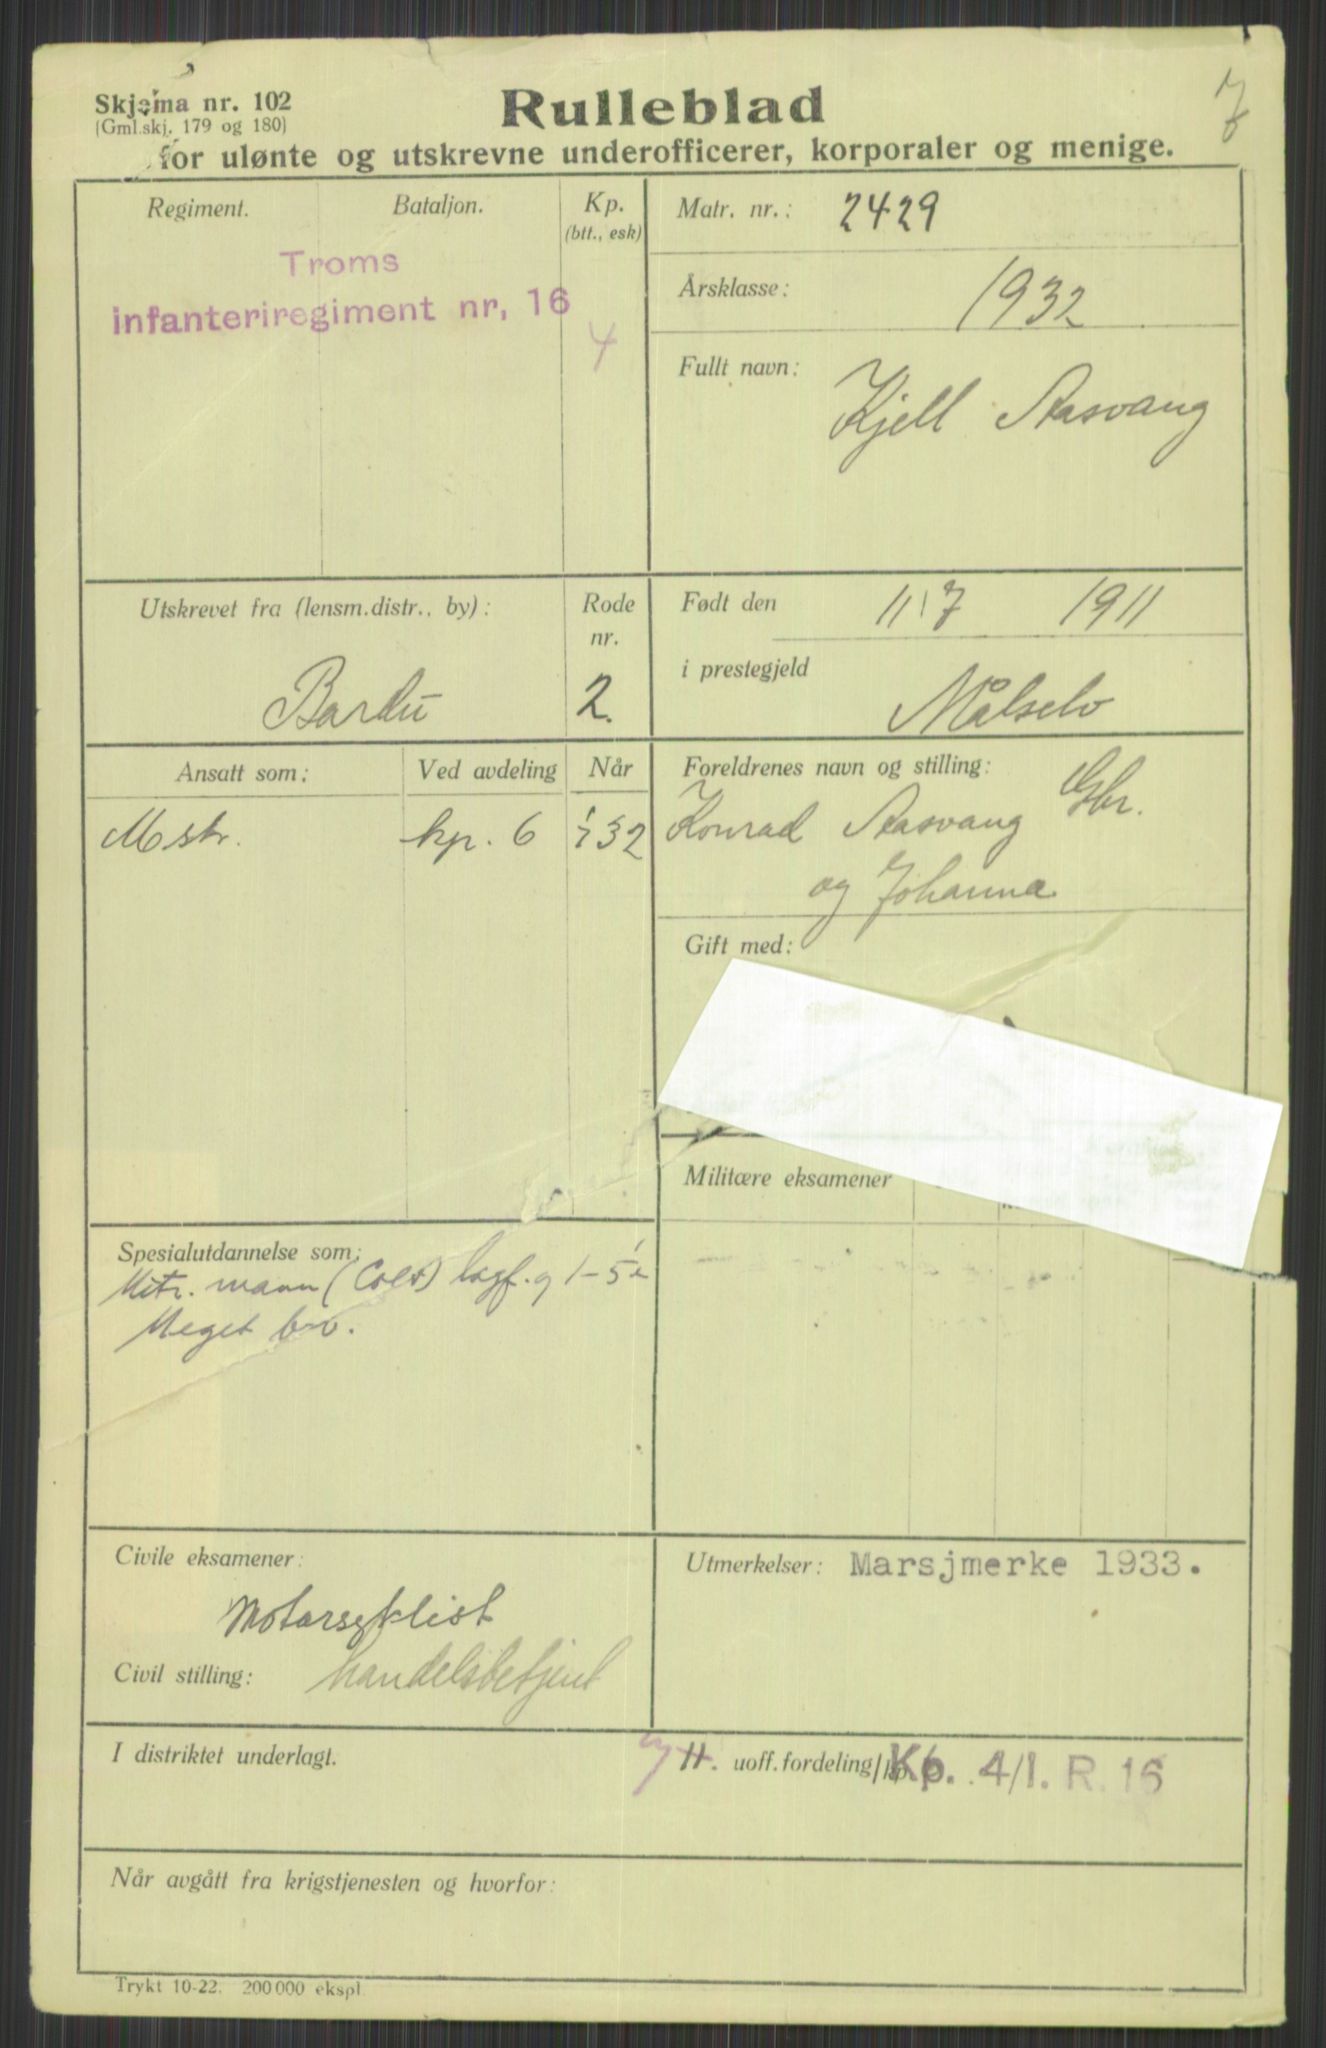 Skjema nr. 102
(Gml.skj. 179 og 180)
Rulleblad
7
for ulønte og utskrevne underofficerer, korporaler og menige.
Regiment.
Bataljon.
Kp.
(btt., esk)
Troms
infanteriregiment nr, 16
4
Matr. nr.: 2429
Årsklasse: 1932
Fullt navn: Kjell Aasvang
Utskrevet fra (lensm.distr., by):
Bardu
Rode
nr.
2.
Født den 11/7 1911
i prestegjeld Målselv
Ansatt som:
Ved avdeling
Når
Mstr.
kp. 6
1/7 32
Foreldrenes navn og stilling: Gbr.
Konrad Aasvang
og Johanna
Gift med:
Militære eksamener
Spesialutdannelse som:
Mitr. mann (Colt)
Meget bra.
Civile eksamener:
Motorsyklist
Civil stilling: handelsbetjent
Utmerkelser: Marsjmerke 1933.
I distriktet underlagt.
H. uoff.fordeling/kp. Kp. 4/I. R. 16
Når avgått fra krigstjenesten og hvorfor:
Trykt 10-22. 200 000 ekspl.